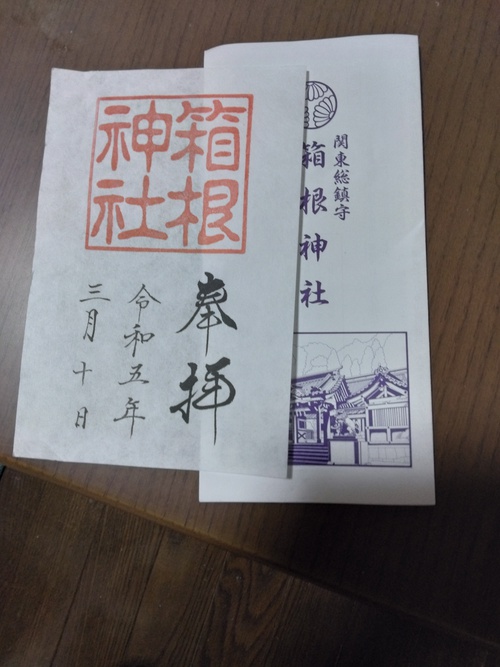 箱根
神社
奉拝
令和五年
三月十日
関東総鎮守
箱根神社